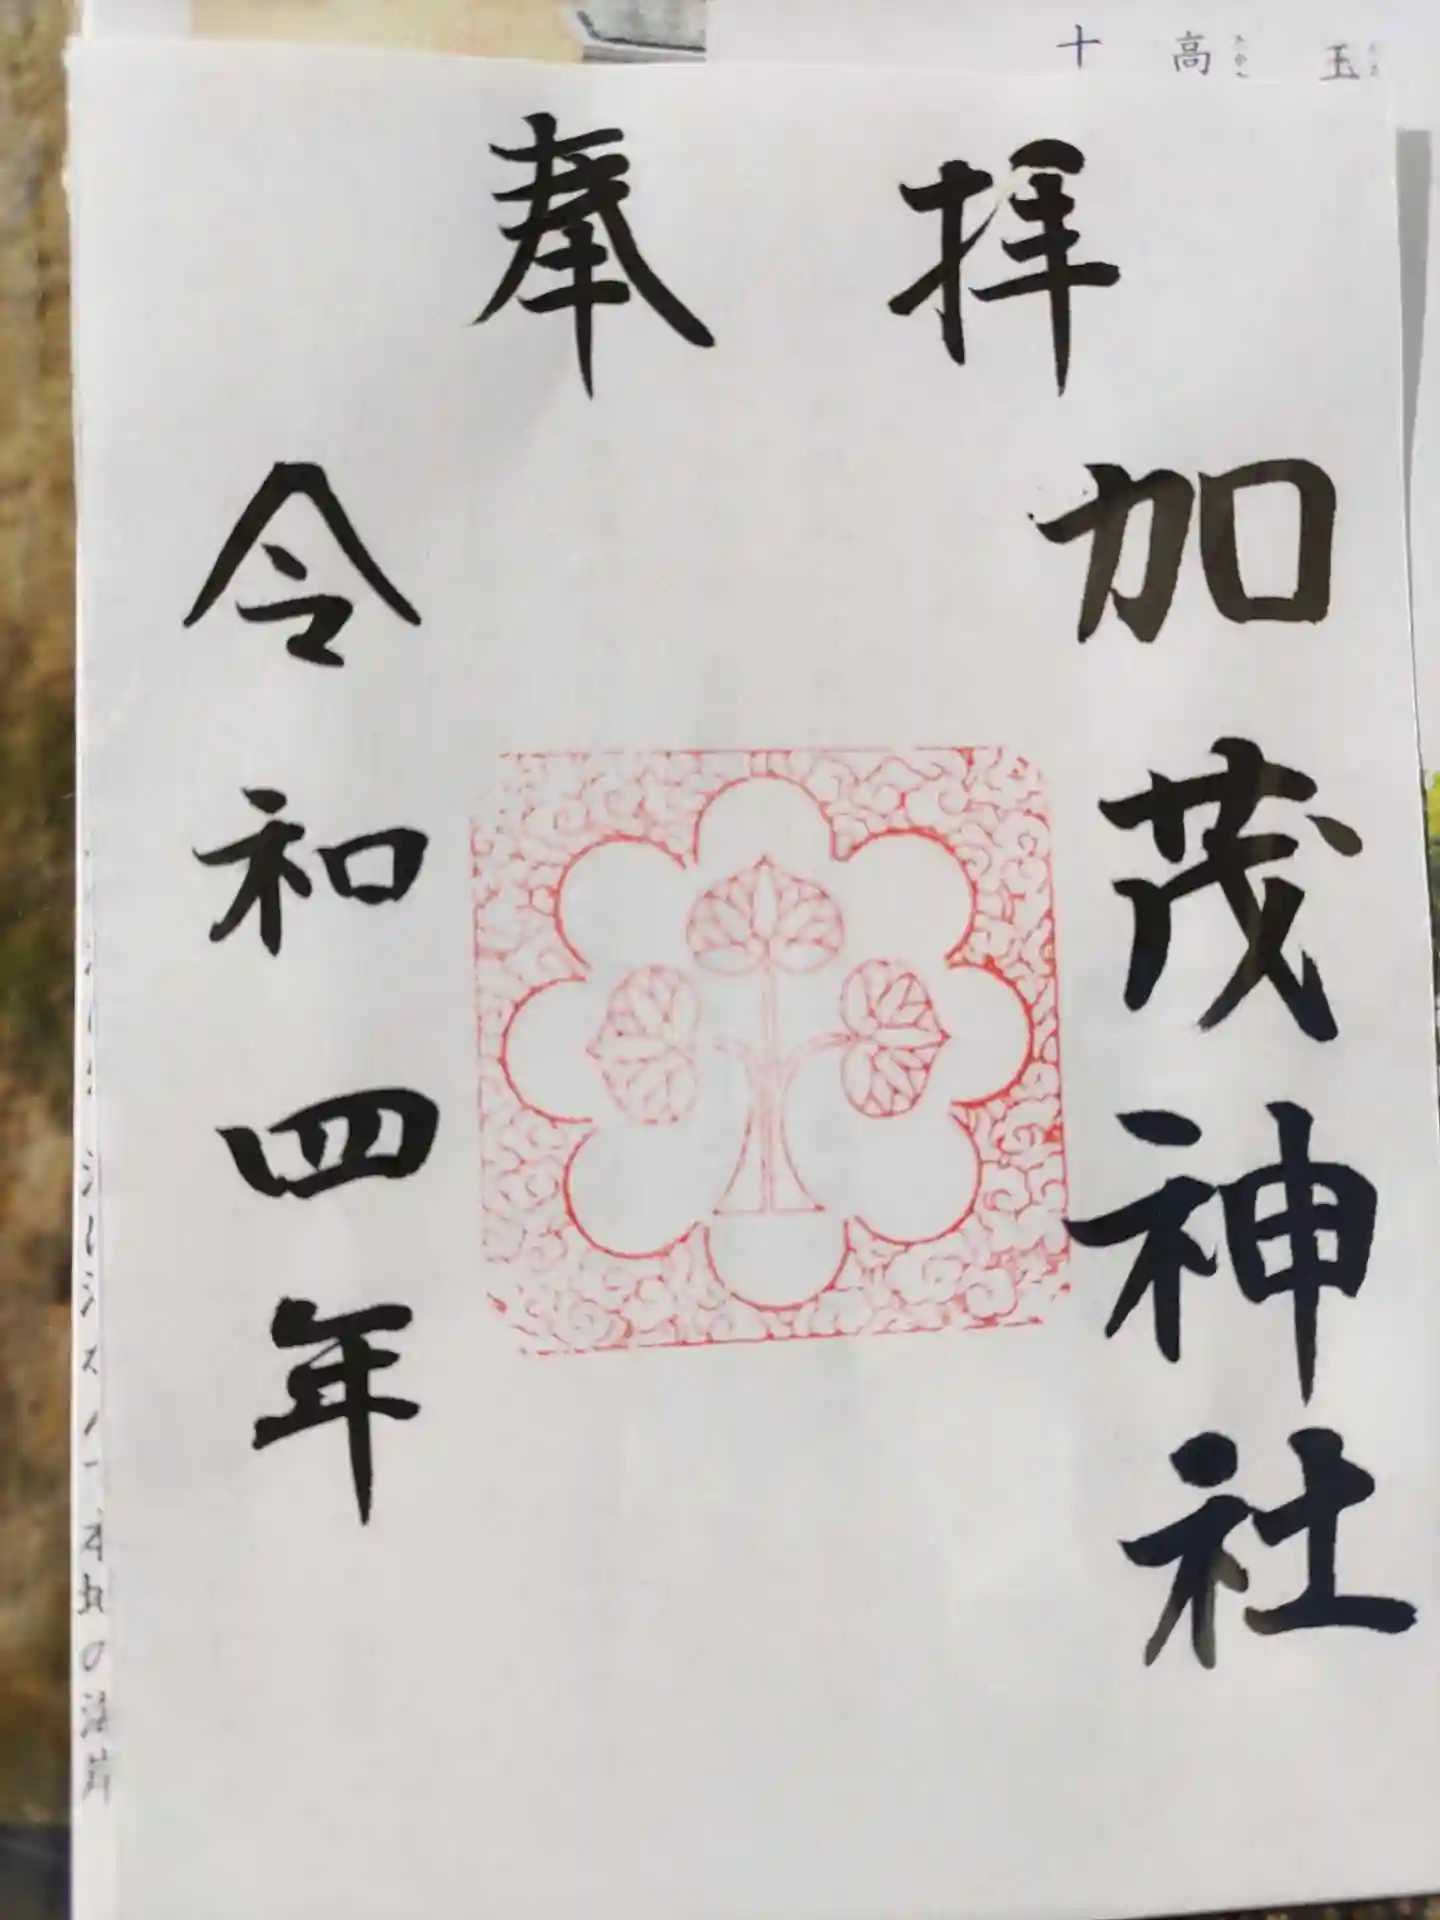 十 高 玉
奉拝
加茂神社
令和四年